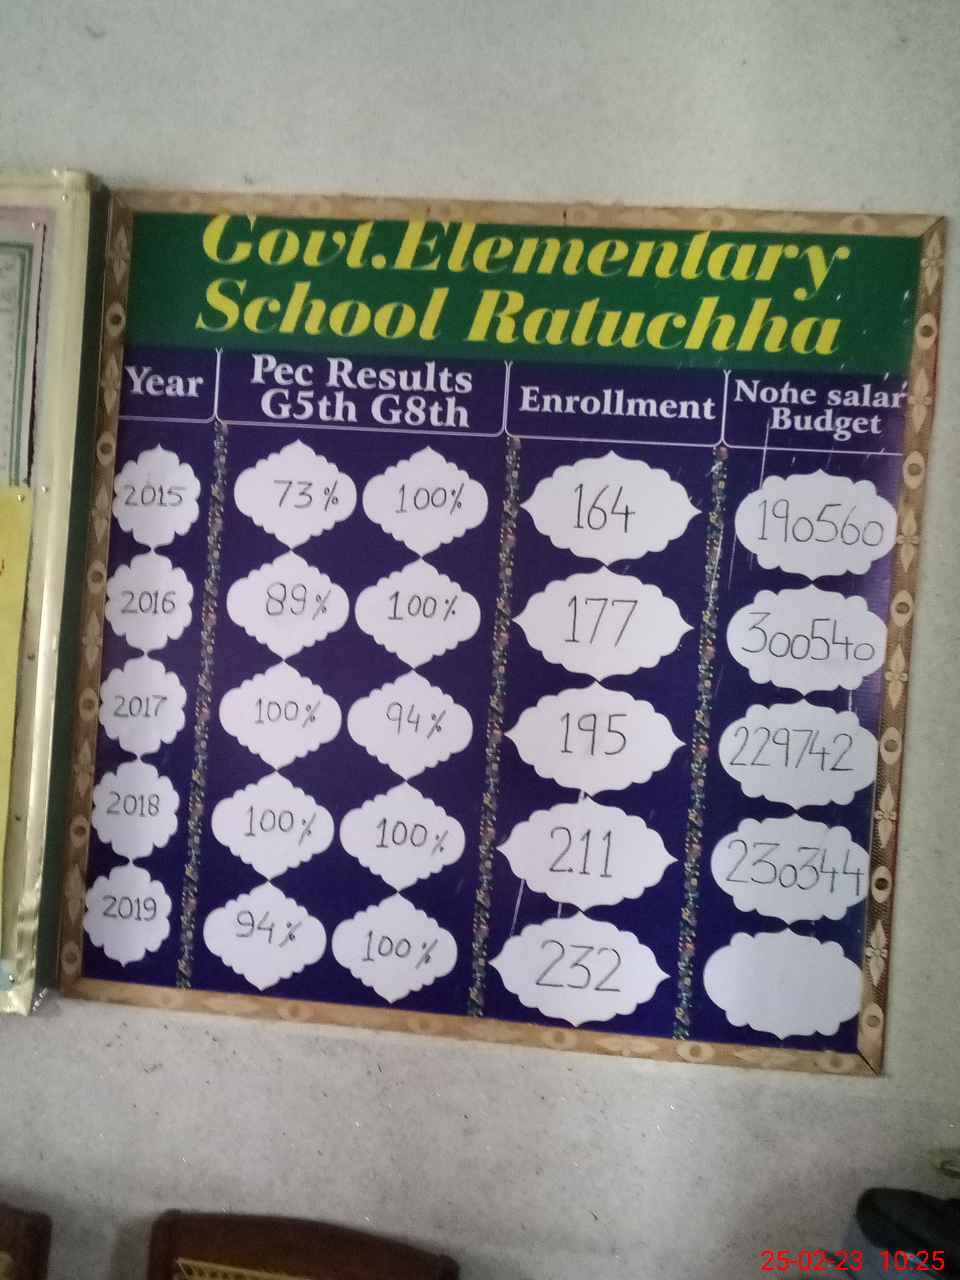 Govt.Elementary
School Ratuchha
Year Pec Results G5th G8th Enrollment None salar Budget
2015 73% 100% 164 190560
2016 89% 100% 177 300540
2017 100% 94% 195 229742
2018 100% 100% 211 230344
2019 94% 100% 232
25-02-23 10:25